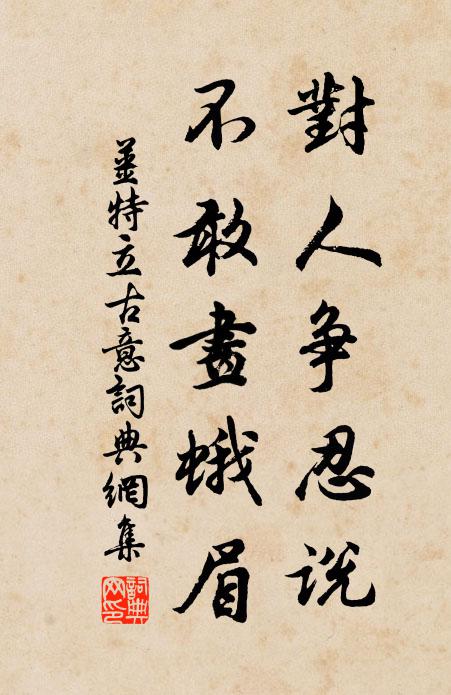 對人爭忍説
不敢畫蛾眉
姜特立古意詞典網集
詞典